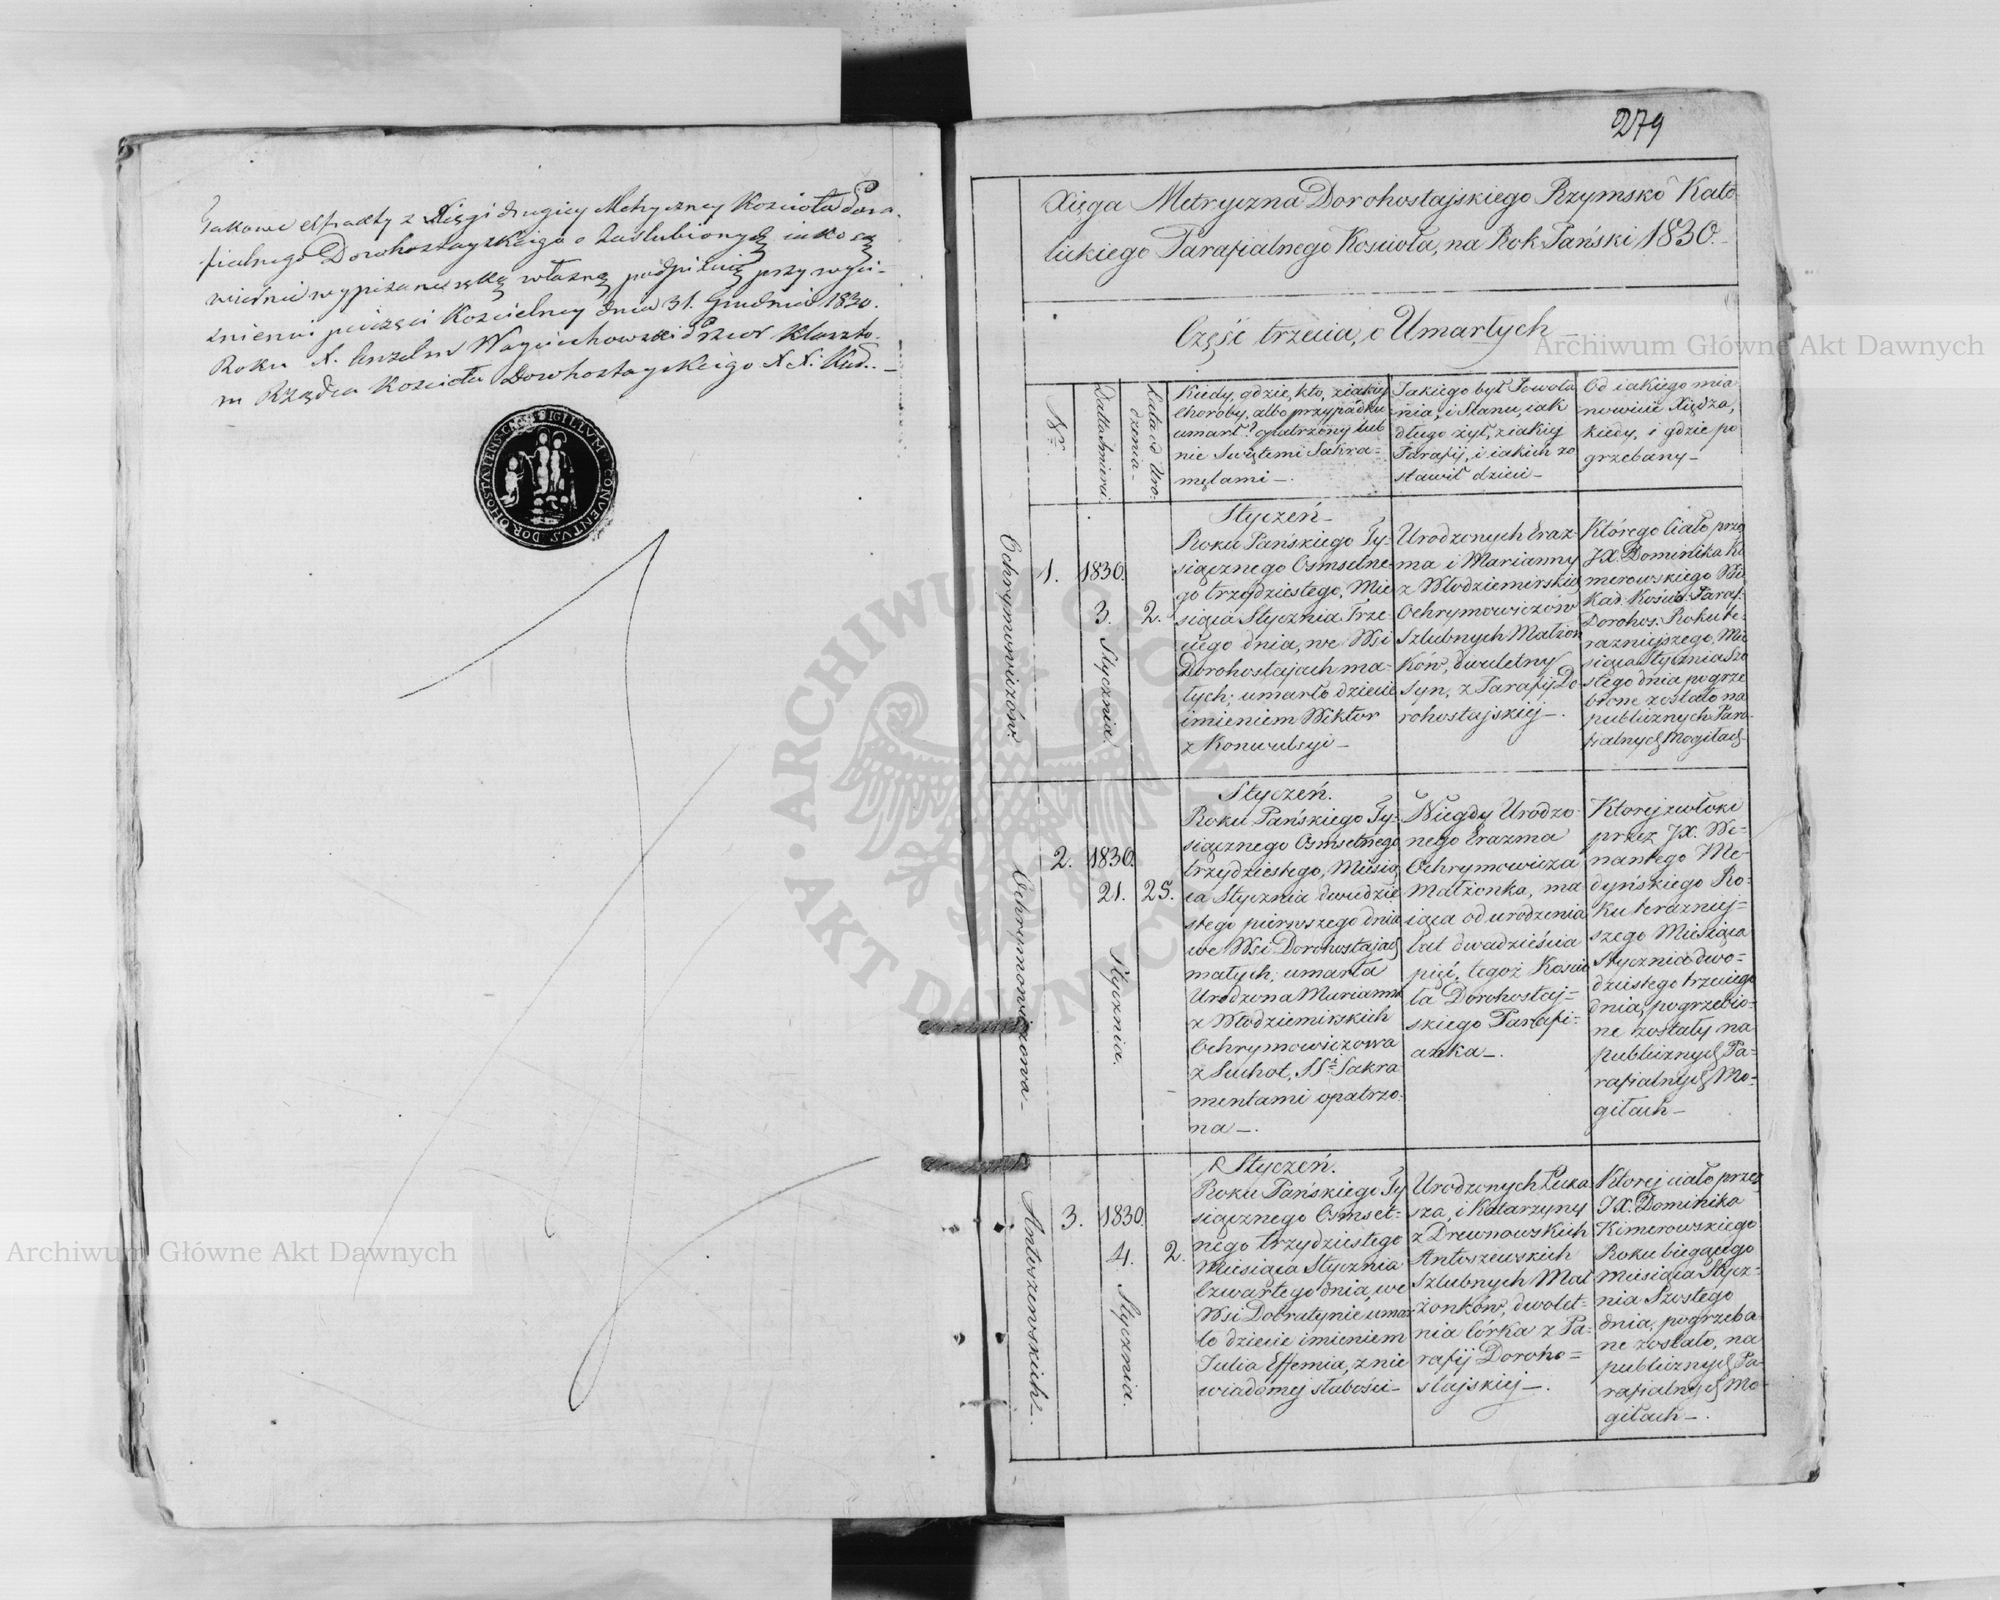 Takowe extrakty z Xięgi drugiey Metryczney Kościoła Para-
fialnego Dorohostayskiego o Zaślubionych iako są
wiernie wypisane ręką własną podpisuię przy wyci-
śnieniu pieczęci Kościelney dnia 31. Grudnia 1830.
Roku X. Anzelm Woyciechowski Przeor Klaszto-
ru Rządca Kościoła Dorohostayskiego
SIGILLUM CONVENTUS DOROHOSTAIENSIS
279
Xięga Metryczna Dorohostajskiego Rzymsko Kato-
lickiego Parafialnego Kościoła, na Rok Pański 1830.
Część trzecia, o Umarłych
Nr.
Datta śmierci
Lata od Uro-
dzenia
Kiedy, gdzie, kto, z iakiey
choroby, albo przypadku
umarł? opatrzony lub
nie Swiętemi Sakra-
mętami
Jakiego był Powoła
nia, i Stanu, iak
długo żył, z iakiey
Parafij, i iakich zo
stawił dzieci
Od iakiego mia
nowicie Xiędza,
kiedy, i gdzie po
grzebany
Ochrymowiczów
1.
1830.
3. Stycznia
2.
Styczeń
Roku Pańskiego Ty-
siącznego Osmsetne-
go trzydziestego, Mie
siąca Stycznia Trze-
ciego dnia, we Wsi
Dorohostajach ma-
łych; umarło dziecie
imieniem Wiktor
z Konwulsyi
Urodzonych Eraz-
ma i Marianny
z Włodziemirskich
Ochrymowiczów
Szlubnych Małżon
ków, dwuletny
syn, z Parafij Do-
rohostajskiej
Którego Ciało przez
JX. Dominika Ki
merowskiego Wi
Kar. Kościo. Paraf.
Dorohos: Roku te-
razniejszego, Mie
siąca Stycznia Szo
stego dnia pogrze
bione zostało na
publicznych Para-
fialnych Mogiłach
Ochrymowiczowa
2.
1830.
21. Stycznia.
25.
Styczeń.
Roku Pańskiego Ty-
siącznego Osmsetnego
trzydziestego, Miesią
ca Stycznia dwudzie
stego pierwszego dnia
we Wsi Dorohostajach
małych, umarła
Urodzona Marianna
z Włodziemirskich
Ochrymowiczowa
z Suchot, SSi Sakra
mentami opatrzo-
na
Niegdy Urodzo-
nego Erazma
Ochrymowicza
Małżonka, ma
iąca od urodzenia
lat dwadzieścia
pięć, tegoż Kościo
ła Dorohostaj-
skiego Parafi-
anka
Ktorej zwłoki
przez JX. We-
nantego Me-
dyńskiego Ro-
ku teraznij-
szego Miesiąca
Stycznia dwo-
dziestego trzeciego
dnia, pogrzebio-
ne zostały na
publicznych Pa-
rafialnych Mo-
giłach
Antoszewskich
3.
1830.
4. Stycznia.
2.
Styczeń.
Roku Pańskiego Ty
siącznego Osmset-
nego trzydziestego
Miesiąca Stycznia
Czwartego dnia, we
Wsi Dobratynie umar
ło dziecie imieniem
Julia Effemia, z nie
wiadomej słabości
Urodzonych Łuka
sza, i Katarzyny
z Drewnowskich
Antoszewskich
Szlubnych Mał
żonków, dwolet-
nia Córka z Pa-
rafij Doroho-
stajskiej
Ktorej ciało przez
JX. Dominika
Kimerowskiego
Roku biegącego
Miesiąca Stycz-
nia Szostego
dnia, pogrzeba
ne zostało, na
publicznych Pa-
rafialnych Mo-
giłach
Archiwum Główne Akt Dawnych
Archiwum Główne Akt Dawnych
ARCHIWUM GŁÓWNE AKT DAWNYCH